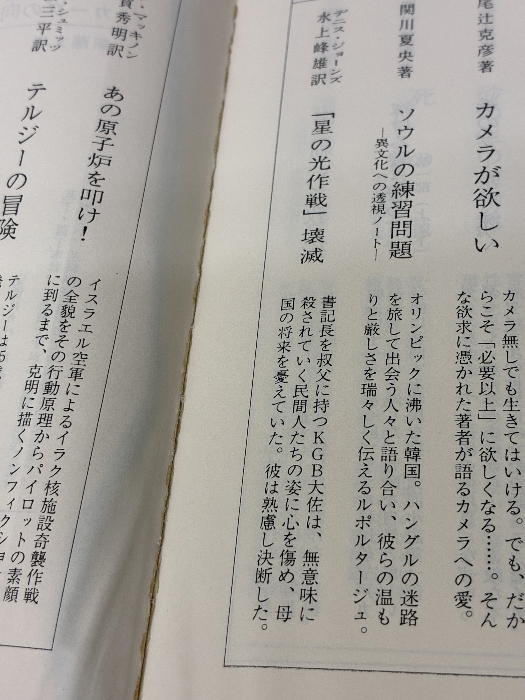 尾辻克彦著
カメラが欲しい
カメラ無しでも生きてはいける。でも、だか
らこそ「必要以上」に欲しくなる……。そん
な欲求に憑かれた著者が語るカメラへの愛。
関川夏央著
ソウルの練習問題
―異文化への透視ノート―
オリンピックに沸いた韓国。ハングルの迷路
を旅して出会う人々と語り合い、彼らの温も
りと厳しさを瑞々しく伝えるルポルタージュ。
デニス・ジョーンズ
水上峰雄訳
「星の光作戦」壊滅
書記長を叔父に持つKGB大佐は、無意味に
殺されていく民間人たちの姿に心を傷め、母
国の将来を憂えていた。彼は熟慮し決断した。
・マッキノン
賀秀明訳
あの原子炉を叩け！
イスラエル空軍によるイラク核施設奇襲作戦
の全貌をその行動原理からパイロットの素顔
に到るまで、克明に描くノンフィクション
シュミッツ
三平訳
テルジーの冒険
テルジーは15歳